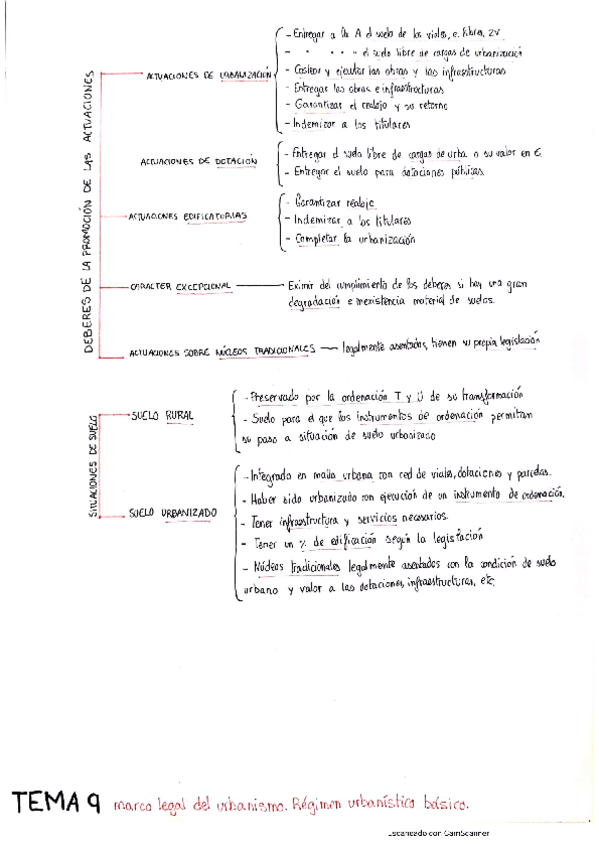 DEBERES DE LA PROMOCIÓN DE LAS ACTUACIONES
ACTUACIONES DE URBANIZACIÓN
- Entregar a la A el suelo de los viales, e. libres, zv
- " " " " el suelo libre de cargas de urbanización
- Costear y ejecutar las obras y las infraestructuras
- Entregar las obras e infraestructuras
- Garantizar el realojo y su retorno
- Indemizar a los titulares
ACTUACIONES DE DOTACIÓN
- Entregar el suelo libre de cargas de urba. o su valor en €.
- Entregar el suelo para dotaciones públicas.
ACTUACIONES EDIFICATORIAS
- Garantizar realojo
- Indemizar a los titulares
- Completar la urbanización
CARACTER EXCEPCIONAL
Eximir del cumplimiento de los deberes si hay una gran
degradación e inexistencia material de suelos.
ACTUACIONES SOBRE NÚCLEOS TRADICIONALES
legalmente asentados, tienen su propia legislación
SITUACIONES DE SUELO
SUELO RURAL
- Preservado por la ordenación T y U de su transformación
- Suelo para el que los instrumentos de ordenación permitan
su paso a situación de suelo urbanizado
SUELO URBANIZADO
- Integrado en malla urbana con red de viales, dotaciones y parcelas.
- Haber sido urbanizado con ejecución de un instrumento de ordenación.
- Tener infraestructura y servicios necesarios.
- Tener un % de edificación según la legislación
- Núcleos tradicionales legalmente asentados con la condición de suelo
urbano y valor a las dotaciones, infraestructuras, etc.
TEMA 9 marco legal del urbanismo. Régimen urbanístico básico.
Escaneado con CamScanner